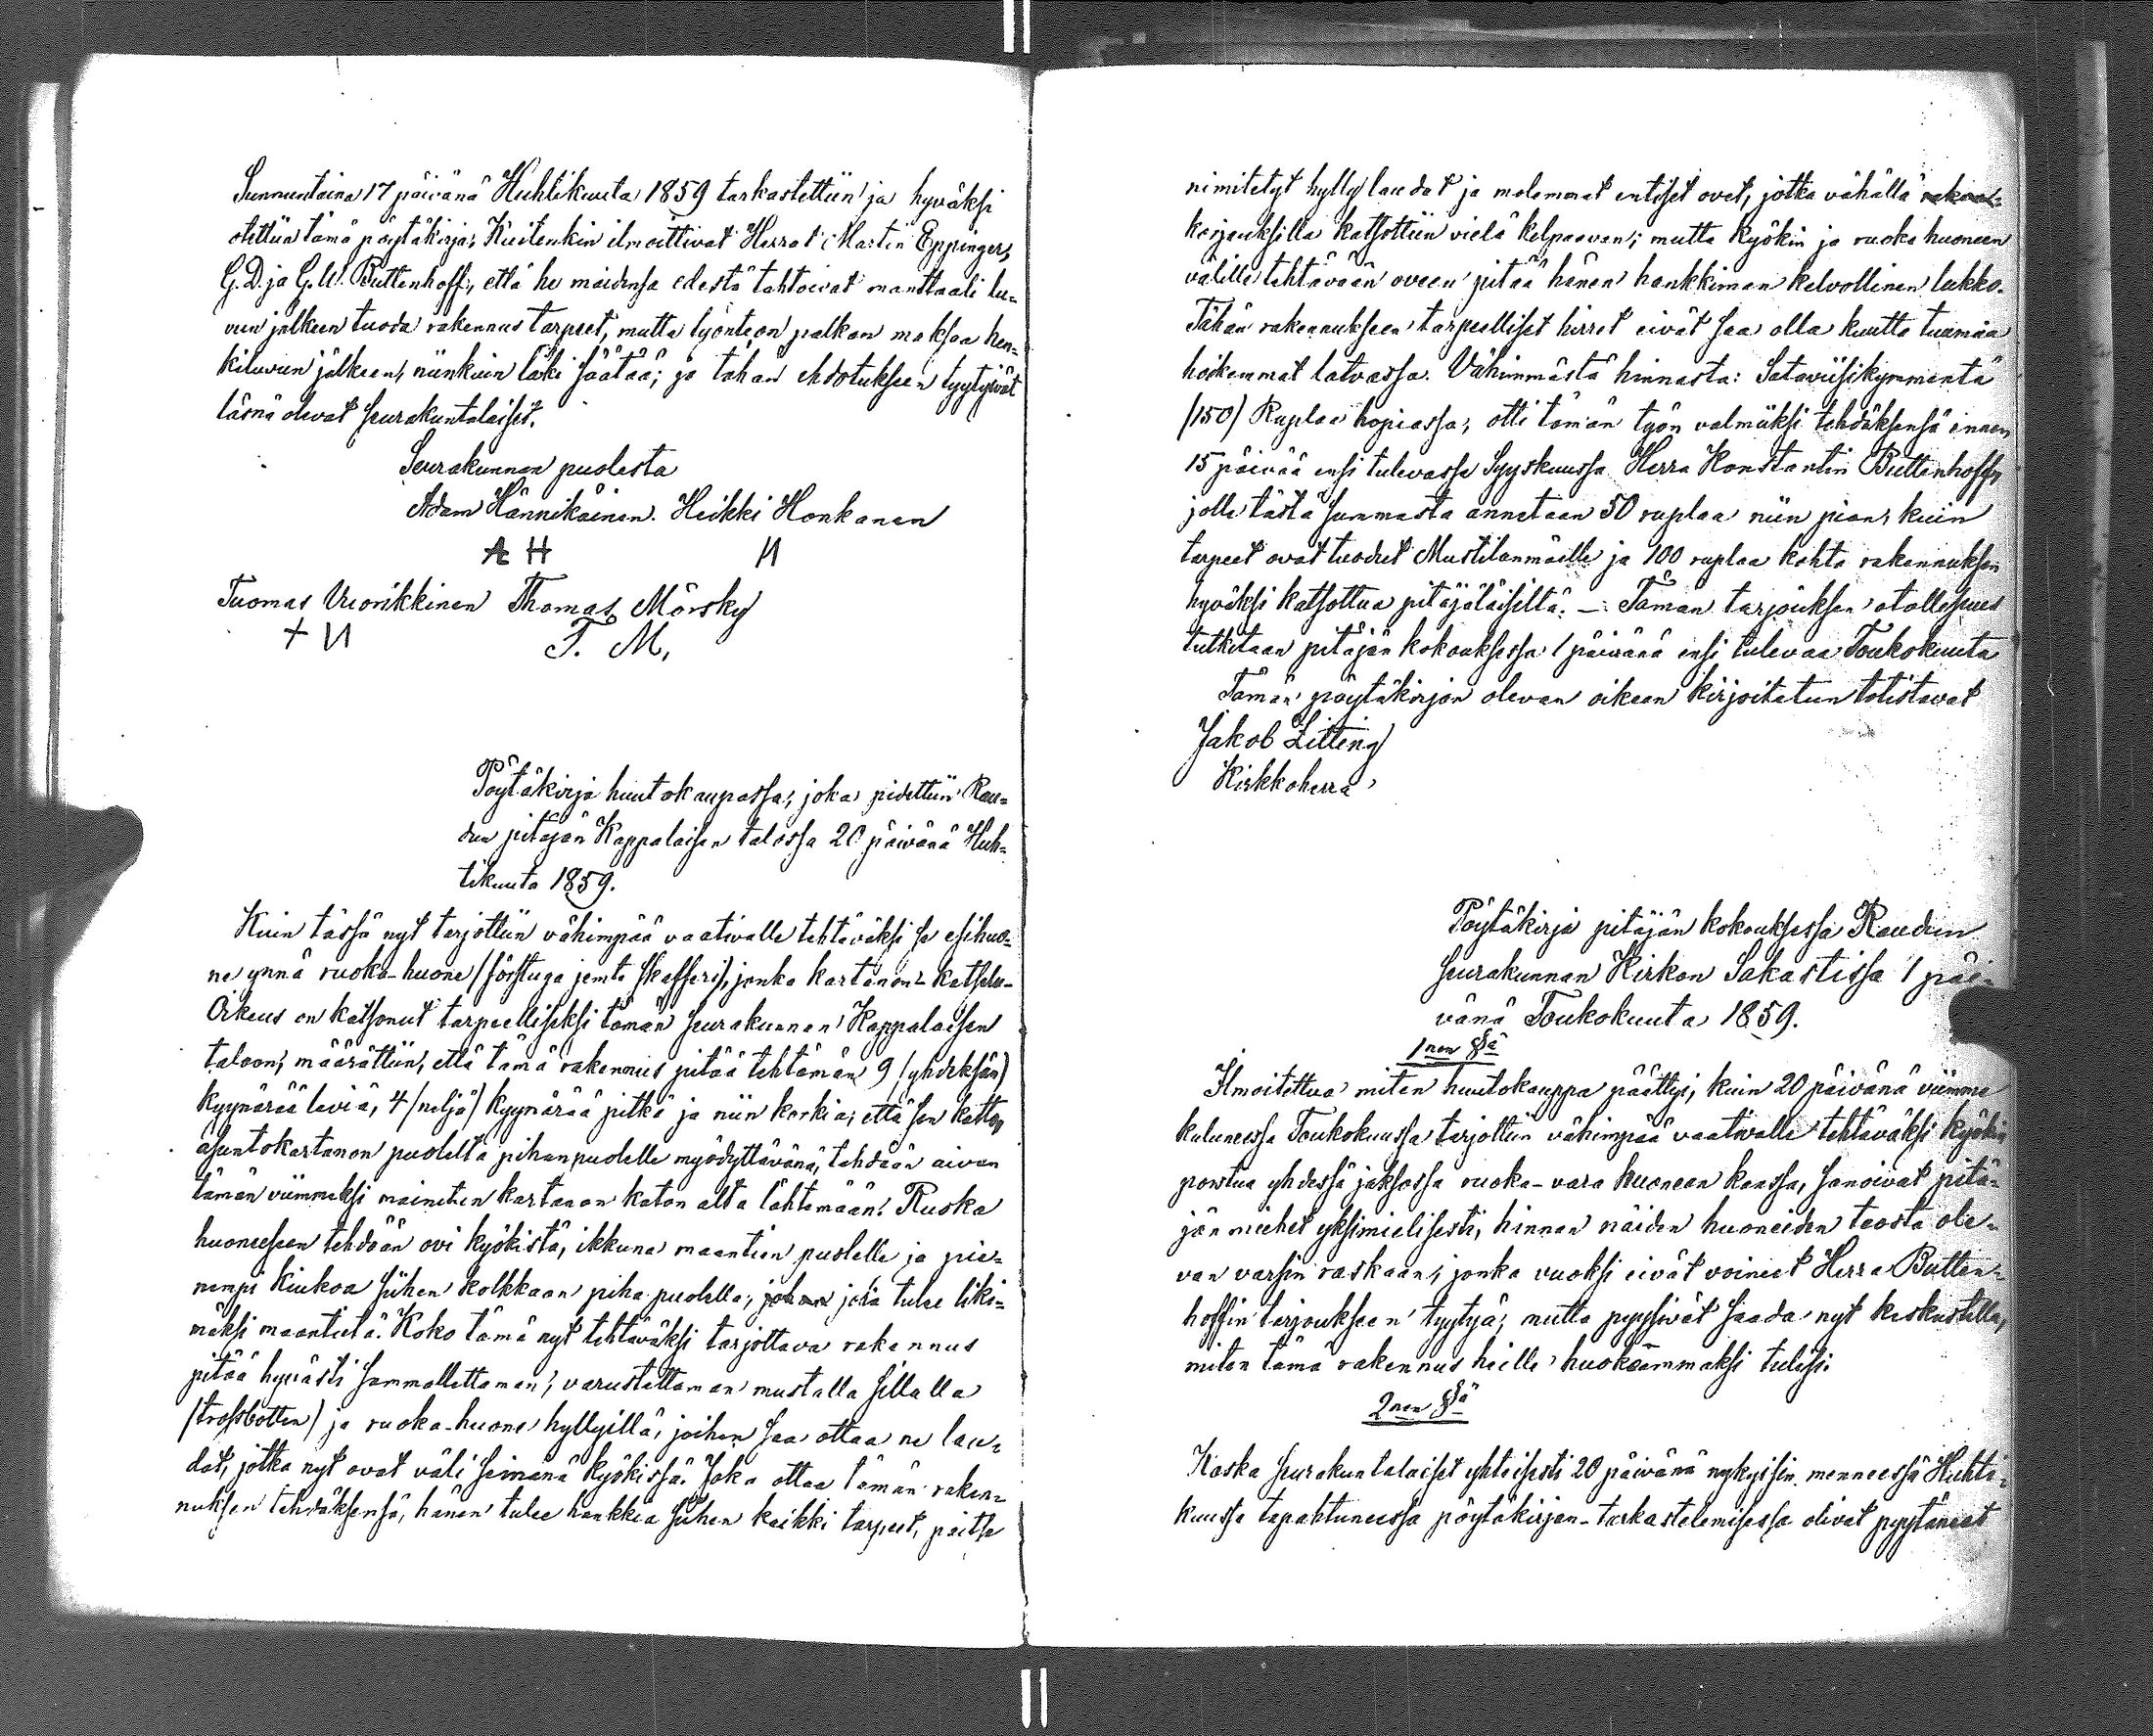 Sunnuntaina 17 päivänä Huhtikuuta 1859 tarkastettiin ja hyväksi
otettiin tämä pöytäkirja; Kuitenkin ilmoittivat Herrat Martin Eppinger,
G. D. ja G. W. Buttenhoff, että he maidensa edestä tahtoivat manttaali lu-
vun jälkeen tuoda rakennus tarpeet, mutta työnteon palkan maksaa hen-
kiluvun jälkeen, niinkuin laki säätää; ja tähän ehdotukseen tyytyivät
läsnä olevat seurakuntalaiset.
Seurakunnan puolesta
Adam Hännikäinen. Heikki Honkanen
A H
Tuomas Vuorikkinen Thomas Mörsky
T. M.
Pöytäkirja huutokaupassa, joka pidettiin Rau-
dun pitäjän Kappalaisen talossa 20 päivänä Huh-
tikuuta 1859.
Kuin tässä nyt tarjottiin vähimpää vaativalle tehtäväksi se esihuo-
ne ynnä ruoka-huone /förstuga jemte skafferi/, jonka kartanon-katselu-
Oikeus on katsonut tarpeelliseksi tämän seurakunnan Kappalaisen
taloon; määrättiin, että tämä rakennus pitää tehtämän 9 /yhdeksän/
kyynärää leviä, 4 /neljä/ kyynärää pitkä ja niin korkia, että sen katto,
asuntokartanon puolelta pihanpuolelle myödyttävänä, tehdään aivan
tämän viimmeksi mainitun kartanon katon alta lähtemään. Ruoka
huoneeseen tehdään ovi kyökistä, ikkuna maantien puolelle ja pie-
nempi kiukoa siihen kolkkaan piha puolella, johon joka tulee liki-
mäksi maantietä. Koko tämä nyt tehtäväksi tarjottava rakennus
pitää hyvästi sammallettaman, varustettaman mustalla sillalla
/trossbotten/ ja ruoka-huone hyllyillä, joihin saa ottaa ne lau-
dat, jotka nyt ovat väli seinänä kyökissä. Joka ottaa tämän raken-
nuksen tehdäksensä, hänen tulee hankkia siihen kaikki tarpeet, paitse
nimitetyt hylly laudat ja molemmat entiset ovet, jotka vähällä
korjauksilla katsottiin vielä kelpaavan; mutta kyökin ja ruoka huoneen
välille tehtävään oveen pitää hänen hankkiman kelvollinen lukko.
Tähän rakennukseen tarpeelliset hirret eivät saa olla kuutta tuumaa
hoikemmat latvassa. Vähimmästä hinnasta: Sataviisikymmentä
/150/ Ruplaa hopiassa, otti tämän työn valmiiksi tehdäksensä ennen
15 päivää ensi tulevassa Syyskuussa Herra Konstantin Buttenhoff,
jolle tästä summasta annetaan 50 ruplaa niin pian, kuin
tarpeet ovat tuodut Mustilanmäelle ja 100 ruplaa kohta rakennuksen
hyväksi katsottua pitäjäläisiltä. – Tämän tarjouksen
tutkitaan pitäjän kokouksessa 1 päivänä ensi tulevaa Toukokuuta
Tämän pöytäkirjan olevan oikean kirjoitetun totistavat
Jakob Zitting
Kirkkoherra
Pöytäkirja pitäjän kokouksessa Raudun
seurakunnan Kirkon Sakastissa 1 päi-
vänä Toukokuuta 1859.
1nen §ä
Ilmoitettua miten huutokauppa päättyi, kuin 20 päivänä viimme
kuluneessa Toukokuussa tarjottiin vähimpää vaativalle tehtäväksi kyökin
porstua yhdessä jaksossa ruoka-vara huoneen kanssa, sanoivat pitä-
jän miehet yksimielisesti, hinnan näiden huoneiden teosta ole-
van varsin raskaan, jonka vuoksi eivät voineet Herra Butten-
hoffin tarjoukseen tyytyä; mutta pyysivät saada nyt keskustella,
miten tämä rakennus heille huokeammaksi tulisi.
2nen §ä
Koska seurakuntalaiset yhteisesti 20 päivänä nykyisin menneessä Huhti-
kuussa tapahtuneessa pöytäkirjan-tarkastelemisessa olivat pyytäneet